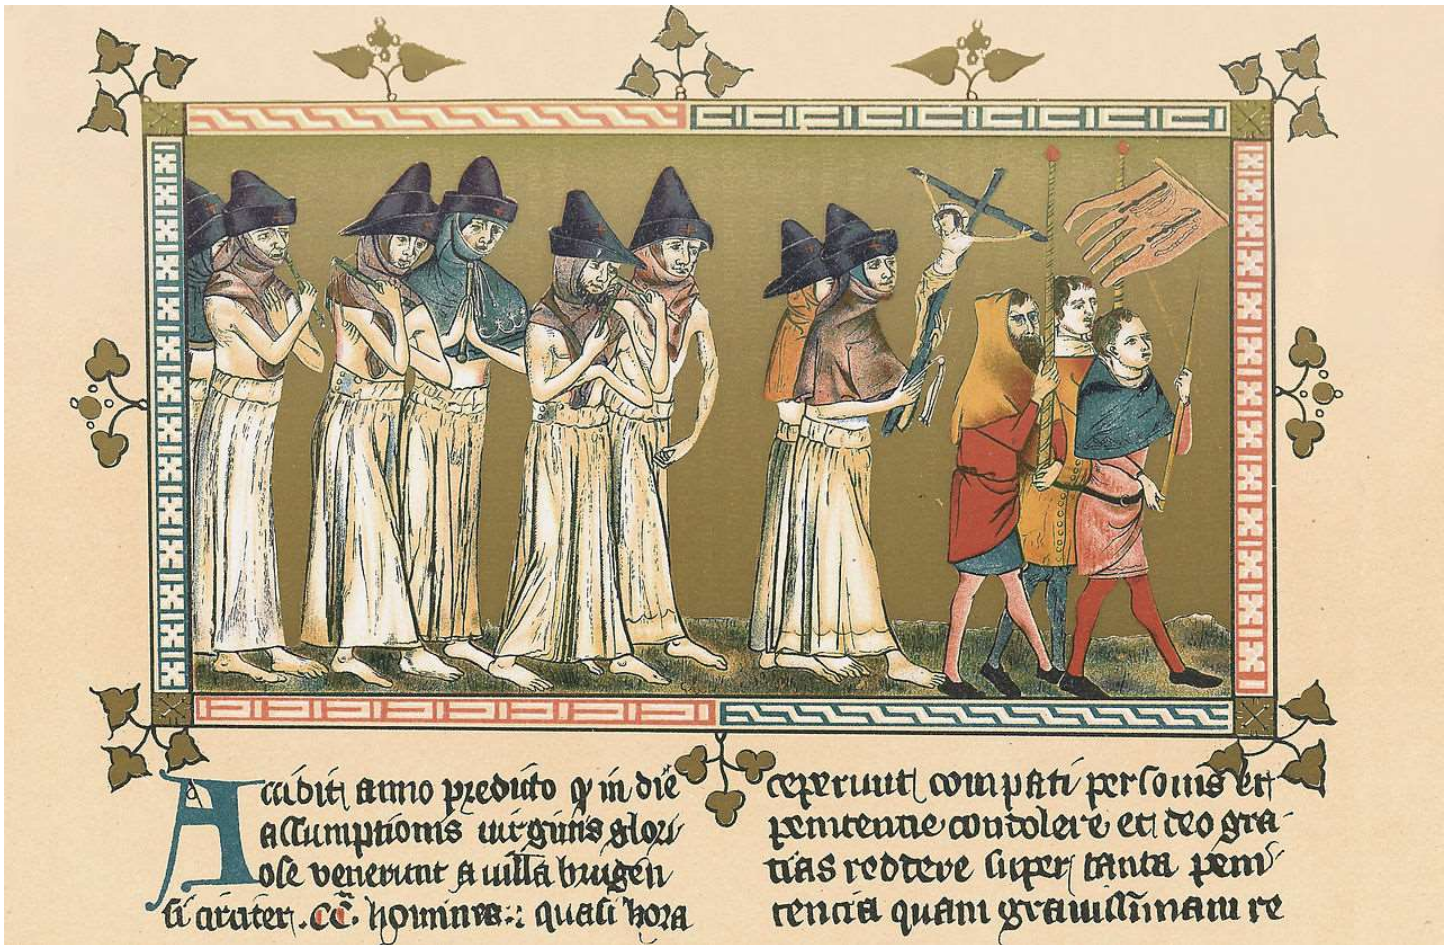 Accidit anno predicto q̄ in die
assumptionis virginis glori
ose venerunt a villa brugen
si circiter .CC. homines: quasi hora
ceperunt compati personis et
penitentie condolere et deo gra-
tias reddere super tanta peni-
tencia quam gravissimam re